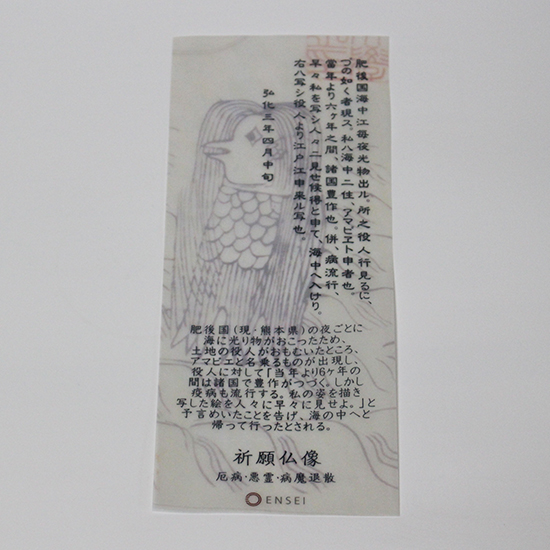 肥後国海中江毎夜光物出ル。所之役人行見るに、
づの如く者現ス。私ハ海中ニ住、アマビヱト申者也。
當年より六ヶ年之間、諸国豊作也。併、病流行、
早々私を写シ人々ニ見せ候得と申て、海中へ入けり。
右ハ写シ役人より江戸江申来ル写也。
弘化三年四月中旬
肥後国(現・熊本県)の夜ごとに
海に光り物がおこったため、
土地の役人がおもむいたところ、
アマビエと名乗るものが出現し、
役人に対して「当年より6ヶ年の
間は諸国で豊作がつづく。しかし
疫病も流行する。私の姿を描き
写した絵を人々に早々に見せよ。」と
予言めいたことを告げ、海の中へと
帰って行ったとされる。
祈願仏像
厄病・悪霊・病魔退散
ENSEI